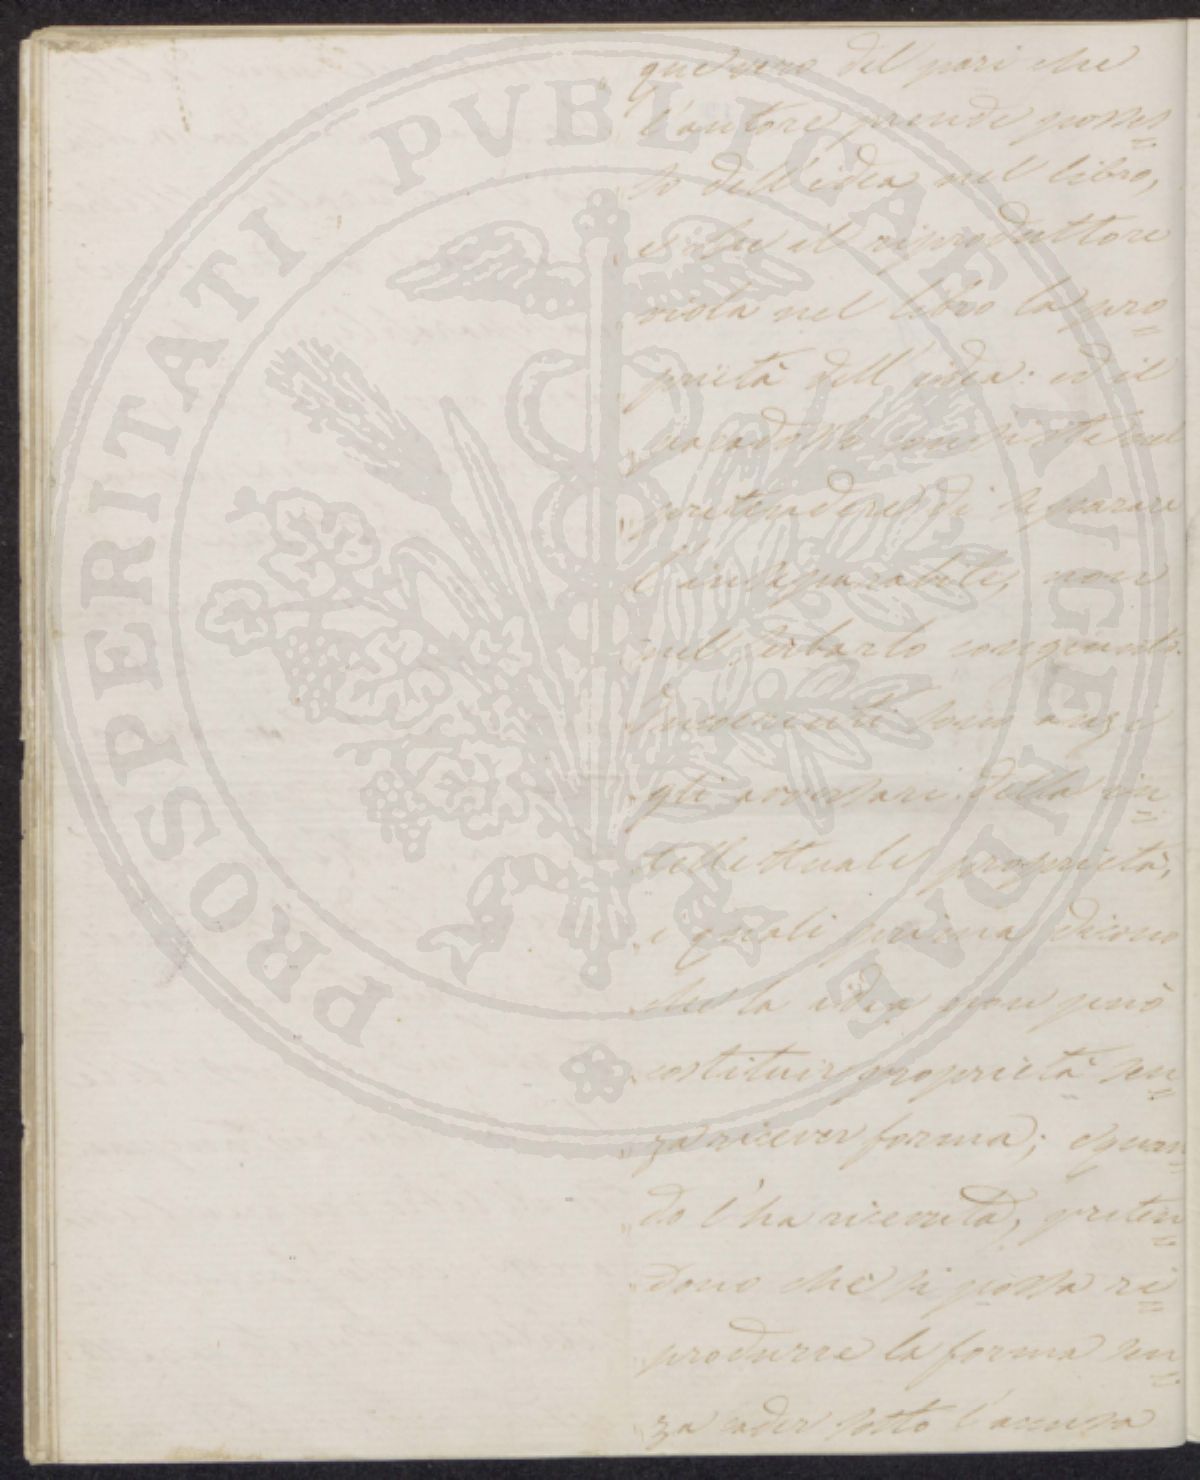 PROSPERITATI PUBLICAE AUGENDAE
que vero del pari che
" l'autore prende posses=
" so dell'idea nel libro,
" e che il riproduttore
" viola nel libro la pro=
" prietà dell'idea: ed il
" paradosso consiste nel
" pretendere di separare
" l'inseparabile, non
" nel serbarlo congiunto.
" Incoerenti sono anzi
" gli avversari della in=
" tellettuale proprietà,
" i quali prima dicono
" che la idea non può
" costituir proprietà sen=
" za ricever forma; e quan=
" do l'ha ricevuta, preten=
" dono che si possa ri=
" produrre la forma sen=
" za cader sotto l'accusa